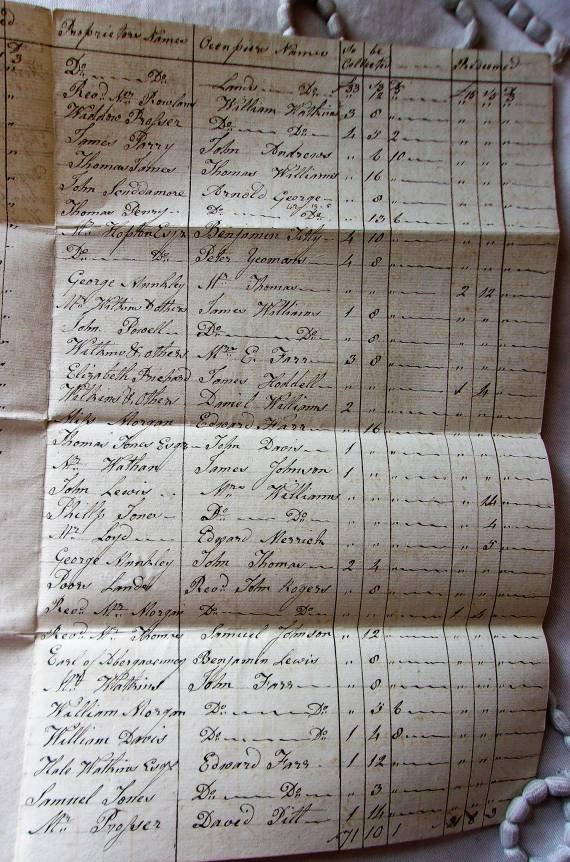 Proprietors Names Occupiers Names To be Collected Redeemed
Do Do Lands Do
Revd Mr Rowland William Watkins 3 8 "
Widdow Prosser Do Do 4 5 2
James Parry John Andrews " 6 10
Thomas James Thomas Williams " 16 "
John Scuddamore Arnold George " 8 "
Thomas Penry Do Do " 13 6
Mr Hopton Esqr Benjamin 4 10 "
Do Do Peter Yeomans 4 8 "
George Mr Thomas " " " 2 12 "
Mr Watkins & others James Williams 1 8 "
John Powell Do Do " 8 "
Watkins & others Mr E. Farr 3 8 "
Elizabeth James Hoddell " " " 1 4 "
Watkins & Others Daniel Williams 2 " "
Miss Morgan Edward Farr " 16 "
Thomas Jones Esqr John Davis 1 " "
Mr Wathan James Johnson 1 " "
John Lewis Mrs Williams " " " " 14 "
Phillip Jones Do Do " " " " 4 "
Mr Loyd Edward Merrick " " " " 5 "
George John Thomas 2 4 "
Poors Lands Revd John Rogers " 8 "
Revd Mr Morgan Do Do " " " 1 4 "
Revd Mr Thomas Samuel Johnson " 12 "
Earl of Abergavenney Benjamin Lewis " 8 "
Mr Watkins John Farr " 8 "
William Morgan Do Do " 5 6
William Davis Do Do 1 4 8
Hale Watkins Esqr Edward Farr 1 12 "
Samuel Jones Do Do " 3 "
Mr Prosser David Pitt 1 16 "
71 10 1